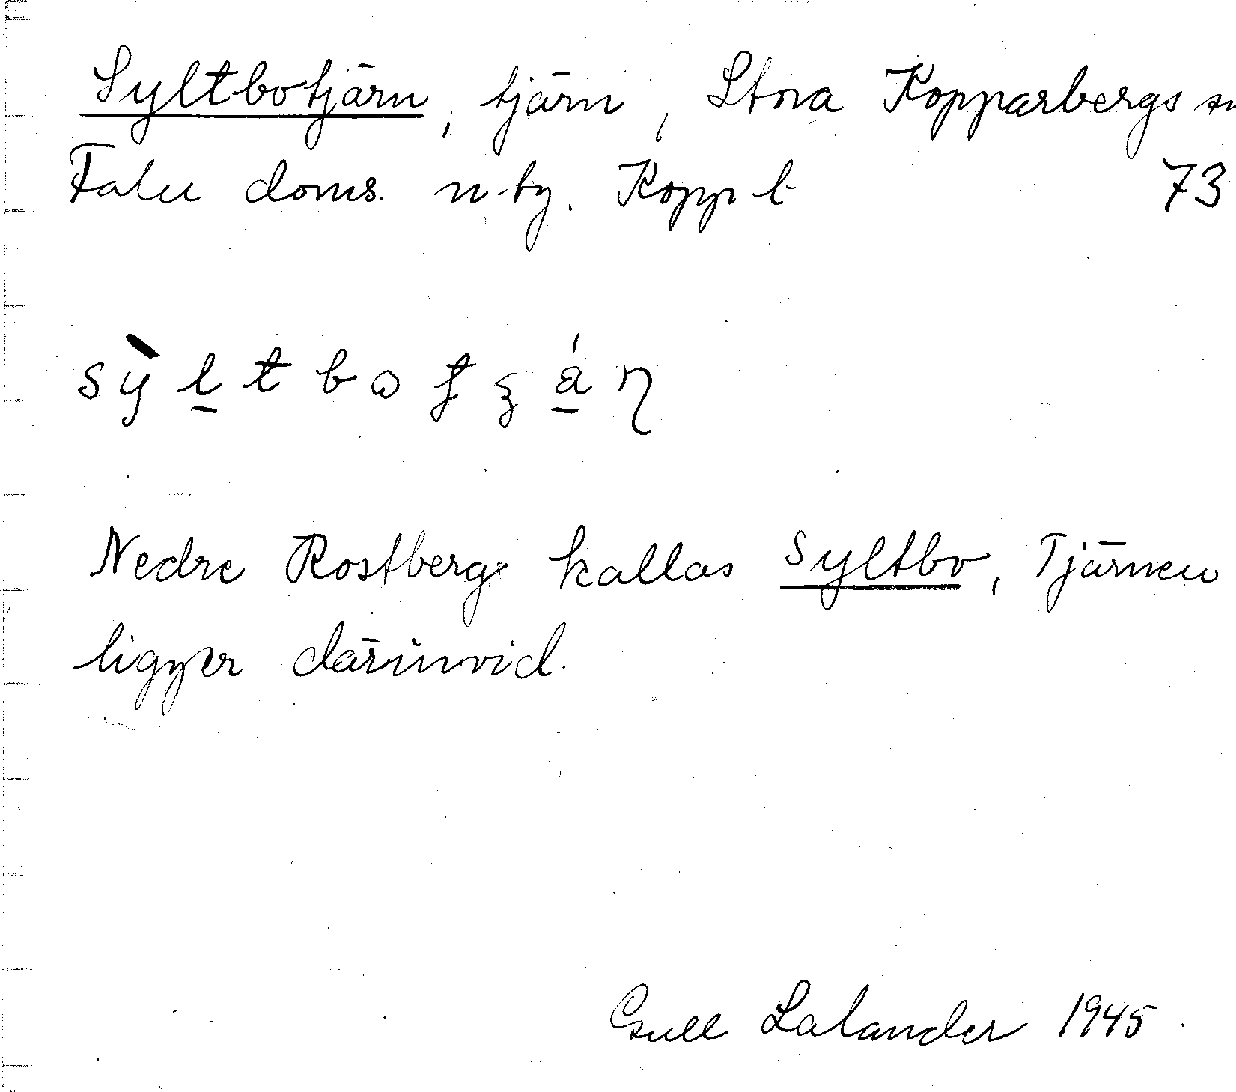 Syltbotjärn, tjärn, Stora Kopparbergs sn
Falu doms. n. tg. Kopp l 73
Nedre Rostberg kallas Syltbo, Tjärnen
ligger därinvid.
Gull Lalander 1945.